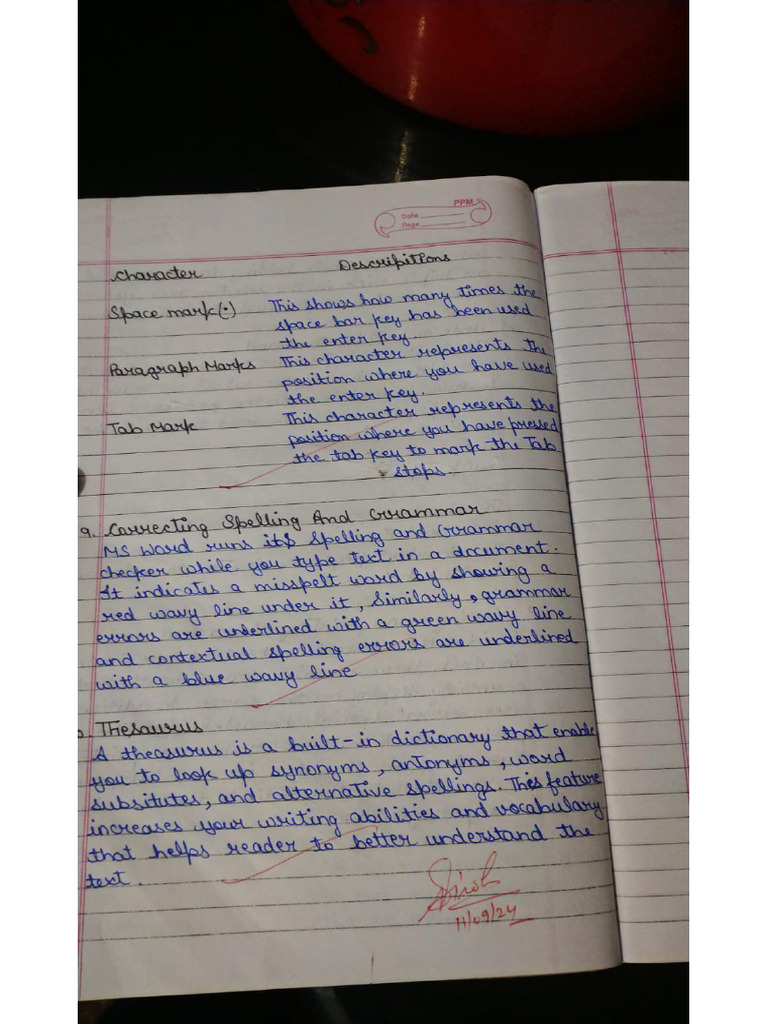 PPM
Date
Page
Character Descripitions
Space mark(·) This shows how many times the
space bar key has been used
the enter key.
Paragraph Marks This character represents the
position where you have used
the enter key.
Tab Mark This character represents the
position where you have pressed
the tab key to mark the Tab
stops.
9. Correcting Spelling And Grammar
MS Word runs its Spelling and Grammar
checker while you type text in a document.
It indicates a misspelt word by showing a
red wavy line under it, Similarly, grammar
errors are underlined with a green wavy line
and contextual spelling errors are underlined
with a blue wavy line
Thesaurus
A theasurus is a built-in dictionary that enable
you to look up synonyms, antonyms, word
subsitutes, and alternative spellings. This feature
increases your writing abilities and vocabulary
that helps reader to better understand the
text.
11/09/24